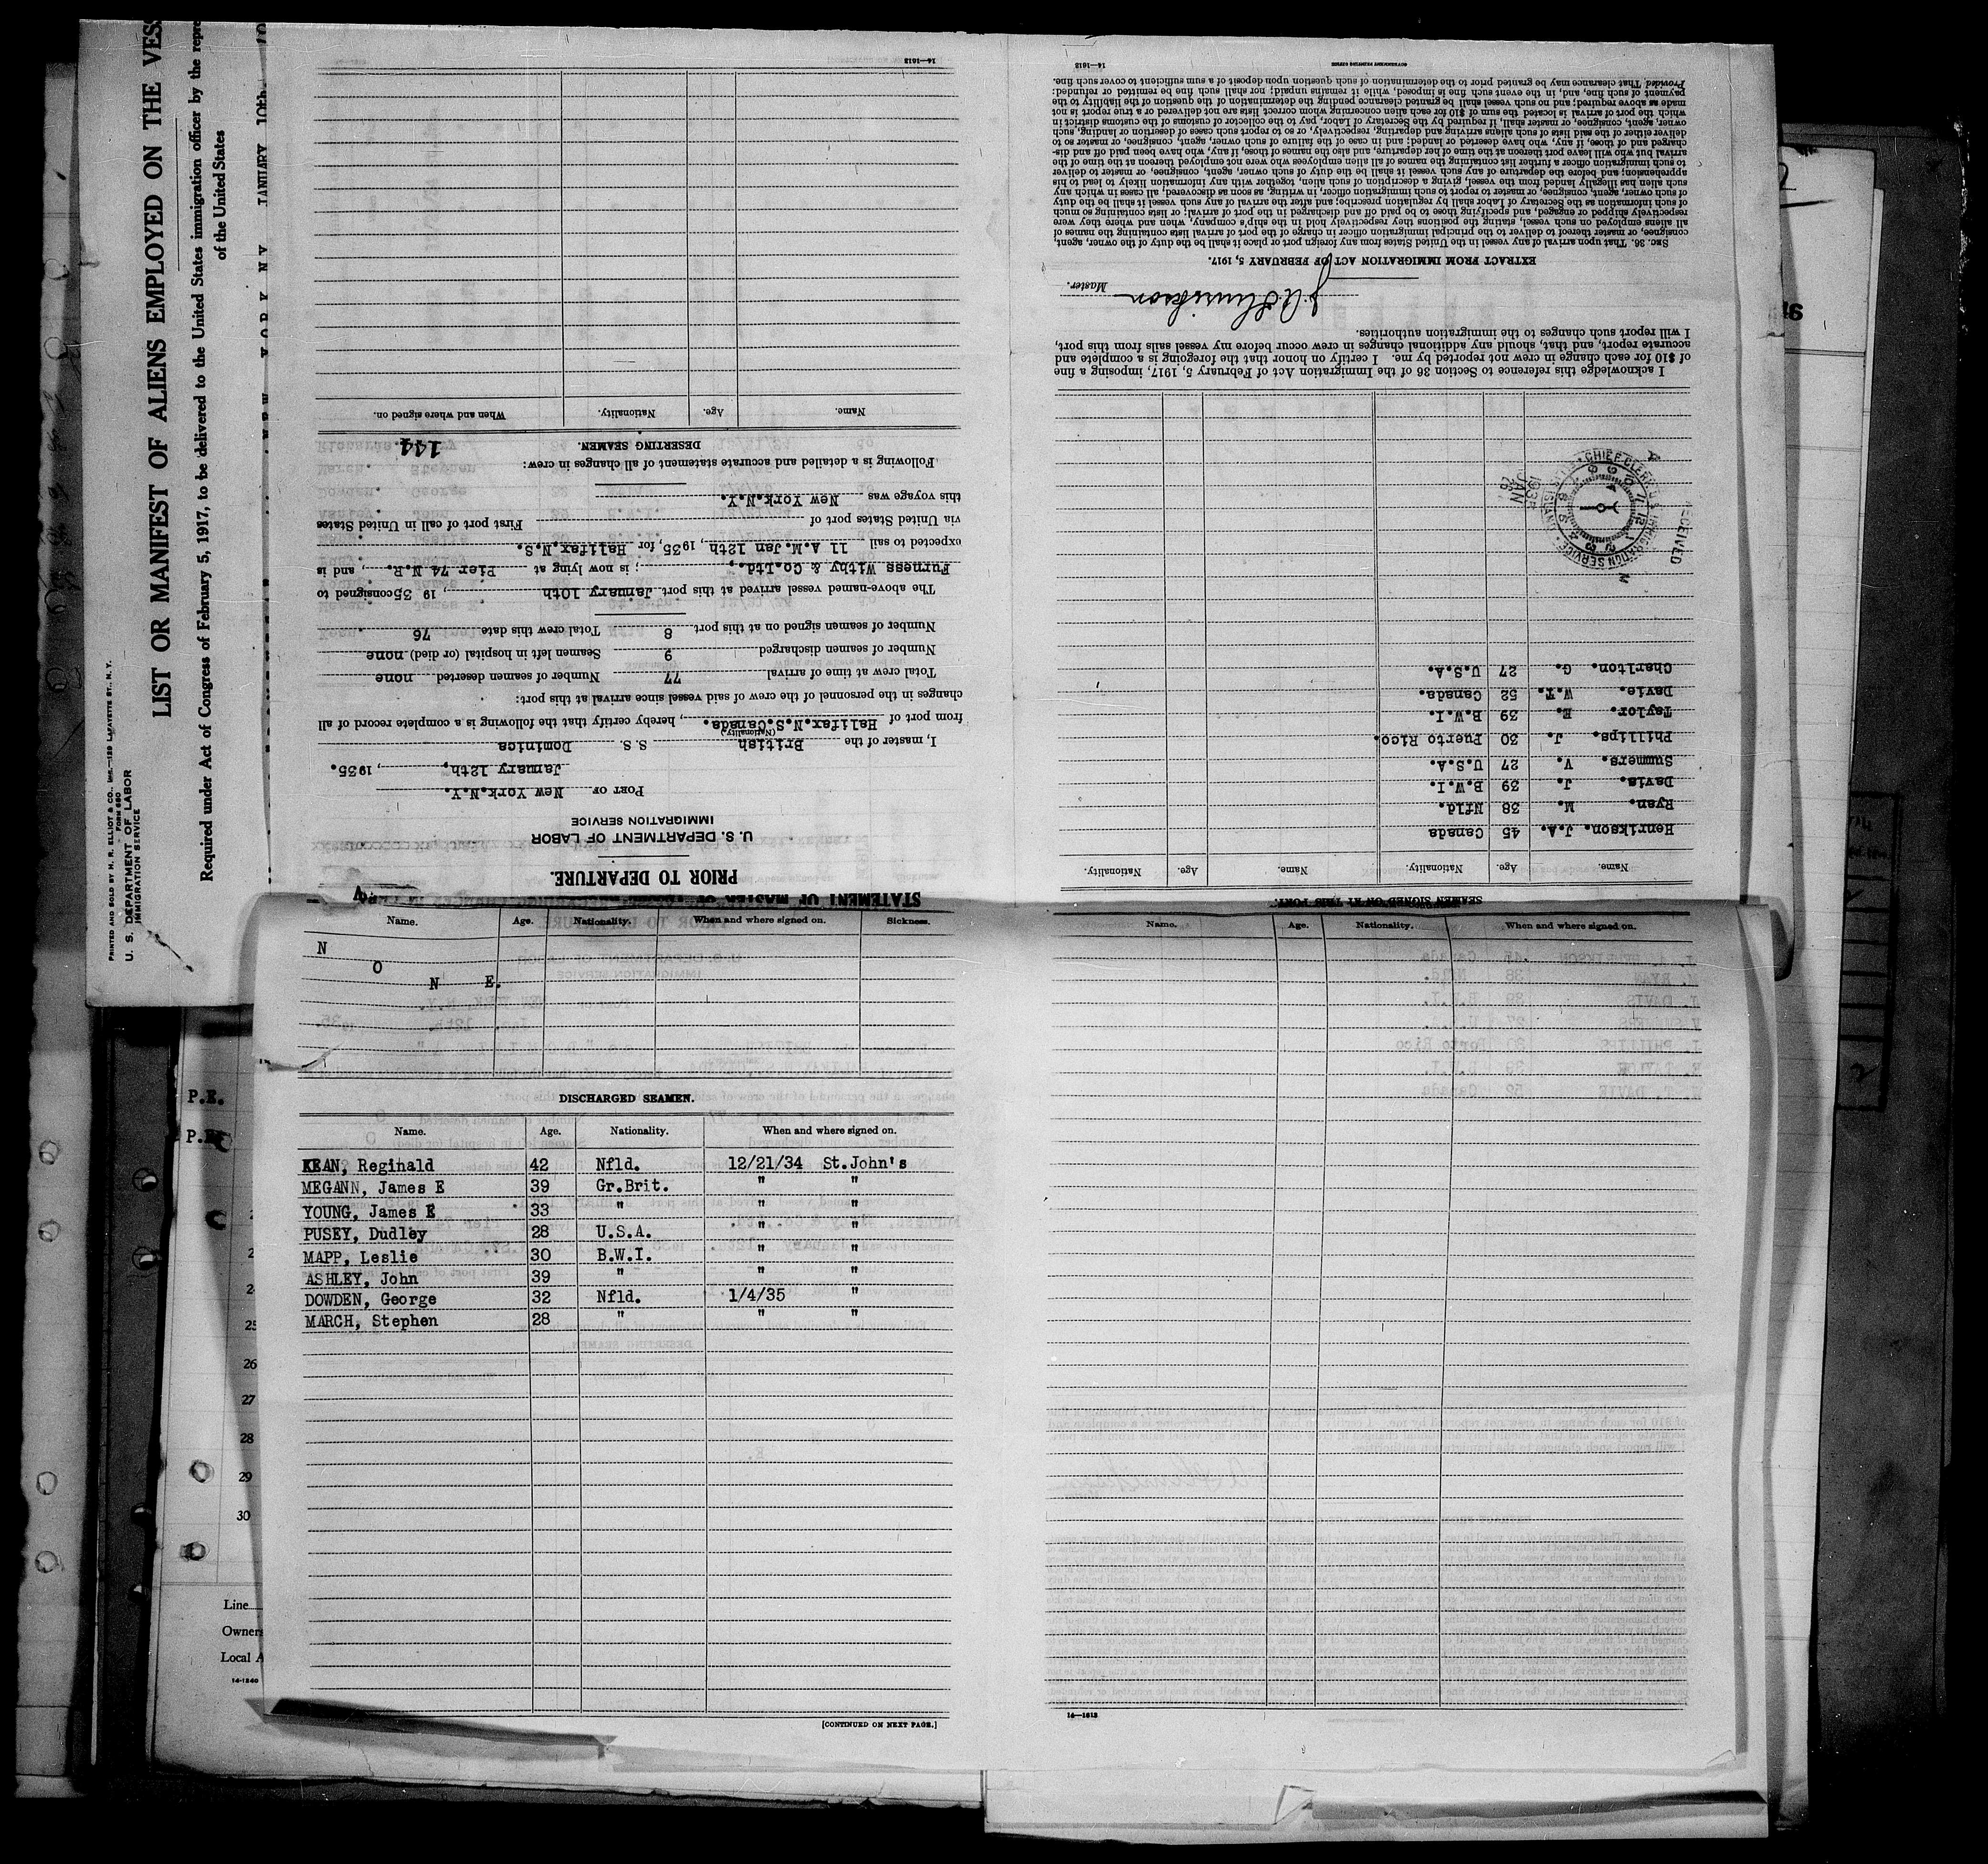 PRINTED AND SOLD BY H. R. ELLIOT & CO., INC.—129 LAFAYETTE ST., N. Y.
FORM 680
U. S. DEPARTMENT OF LABOR
IMMIGRATION SERVICE
LIST OR MANIFEST OF ALIENS EMPLOYED ON THE VES
Required under Act of Congress of February 5, 1917, to be delivered to the United States immigration officer by the repre
of the United States
JANUARY 10th
STATEMENT OF MASTER OF
PRIOR TO DEPARTURE.
U. S. DEPARTMENT OF LABOR
IMMIGRATION SERVICE
PORT OF New York.N.Y.
January 12th, , 1935.
I, master of the British S. S. Dominica
(Nationality)
from port of Halifax.N.S.Canada. , hereby certify that the following is a complete record of all
changes in the personnel of the crew of said vessel since arrival at this port:
Total crew at time of arrival 77 Number of seamen deserted none
Number of seamen discharged 9 Seamen left in hospital (or died) none
Number of seamen signed on at this port 8 Total crew this date 76
The above-named vessel arrived at this port January 10th , 19 35 consigned to
Furness Withy & Co.Ltd., ; is now lying at Pier 74 N.R. , and is
expected to sail 11 A.M.Jan 12th , 1935, for Halifax.N.S.
via United States port of First port of call in United States
this voyage was New York.N.Y.
Following is a detailed and accurate statement of all changes in crew:
DESERTING SEAMEN. 144
Name. Age. Nationality. When and where signed on.
14—1613
SEAMEN SIGNED ON AT THIS PORT.
Name. Age. Nationality. Name. Age. Nationality.
Henrikson. J.A. 45 Canada
Ryan. M. 38 Nfld.
Davis. J. 39 B.W.I.
Summers. V. 27 U.S.A.
Phillips. J. 30 Puerto Rico.
Taylor. E. 39 B.W.I.
Davie. W.T. 52 Canada.
Charlton. G. 27 U.S.A.
RECEIVED
CHIEF CLERK U.S. IMMIGRATION SERVICE
JAN
1935
I acknowledge this reference to Section 36 of the Immigration Act of February 5, 1917, imposing a fine
of $10 for each change in crew not reported by me. I certify on honor that the foregoing is a complete and
accurate report, and that, should any additional changes in crew occur before my vessel sails from this port,
I will report such changes to the immigration authorities.
Master.
EXTRACT FROM IMMIGRATION ACT OF FEBRUARY 5, 1917.
SEC. 36. That upon arrival of any vessel in the United States from any foreign port or place it shall be the duty of the owner, agent,
consignee, or master thereof to deliver to the principal immigration officer in charge of the port of arrival lists containing the names of
all aliens employed on such vessel, stating the positions they respectively hold in the ship's company, when and where they were
respectively shipped or engaged, and specifying those to be paid off and discharged in the port of arrival; or lists containing so much
of such information as the Secretary of Labor shall by regulation prescribe; and after the arrival of any such vessel it shall be the duty
of such owner, agent, consignee, or master to report to such immigration officer, in writing, as soon as discovered, all cases in which any
such alien has illegally landed from the vessel, giving a description of such alien, together with any information likely to lead to his
apprehension; and before the departure of any such vessel it shall be the duty of such owner, agent, consignee, or master to deliver
to such immigration officer a further list containing the names of all alien employees who were not employed thereon at the time of the
arrival but who will leave port thereon at the time of her departure, and also the names of those, if any, who have been paid off and dis-
charged and of those, if any, who have deserted or landed; and in case of the failure of such owner, agent, consignee, or master so to
deliver either of the said lists of such aliens arriving and departing, respectively, or so to report such cases of desertion or landing, such
owner, agent, consignee, or master shall, if required by the Secretary of Labor, pay to the collector of customs of the customs district in
which the port of arrival is located the sum of $10 for each alien concerning whom correct lists are not delivered or a true report is not
made as above required; and no such vessel shall be granted clearance pending the determination of the question of the liability to the
payment of such fine, and, in the event such fine is imposed, while it remains unpaid; nor shall such fine be remitted or refunded:
Provided, That clearance may be granted prior to the determination of such question upon deposit of a sum sufficient to cover such fine.
14—1613 GOVERNMENT PRINTING OFFICE
Name. Age. Nationality. When and where signed on. Sickness.
N
O
N E.
DISCHARGED SEAMEN.
Name. Age. Nationality. When and where signed on.
KEAN, Reginald 42 Nfld. 12/21/34 St.John's
MEGANN, James E 39 Gr.Brit. " "
YOUNG, James E 33 " " "
PUSEY, Dudley 28 U.S.A. " "
MAPP, Leslie 30 B.W.I. " "
ASHLEY, John 39 " " "
DOWDEN, George 32 Nfld. 1/4/35 "
MARCH, Stephen 28 " " "
[CONTINUED ON NEXT PAGE.]
Name. Age. Nationality. When and where signed on.
14—1613
P.E.
25
26
27
28
29
30
Line
Owners
Local A
14-1240